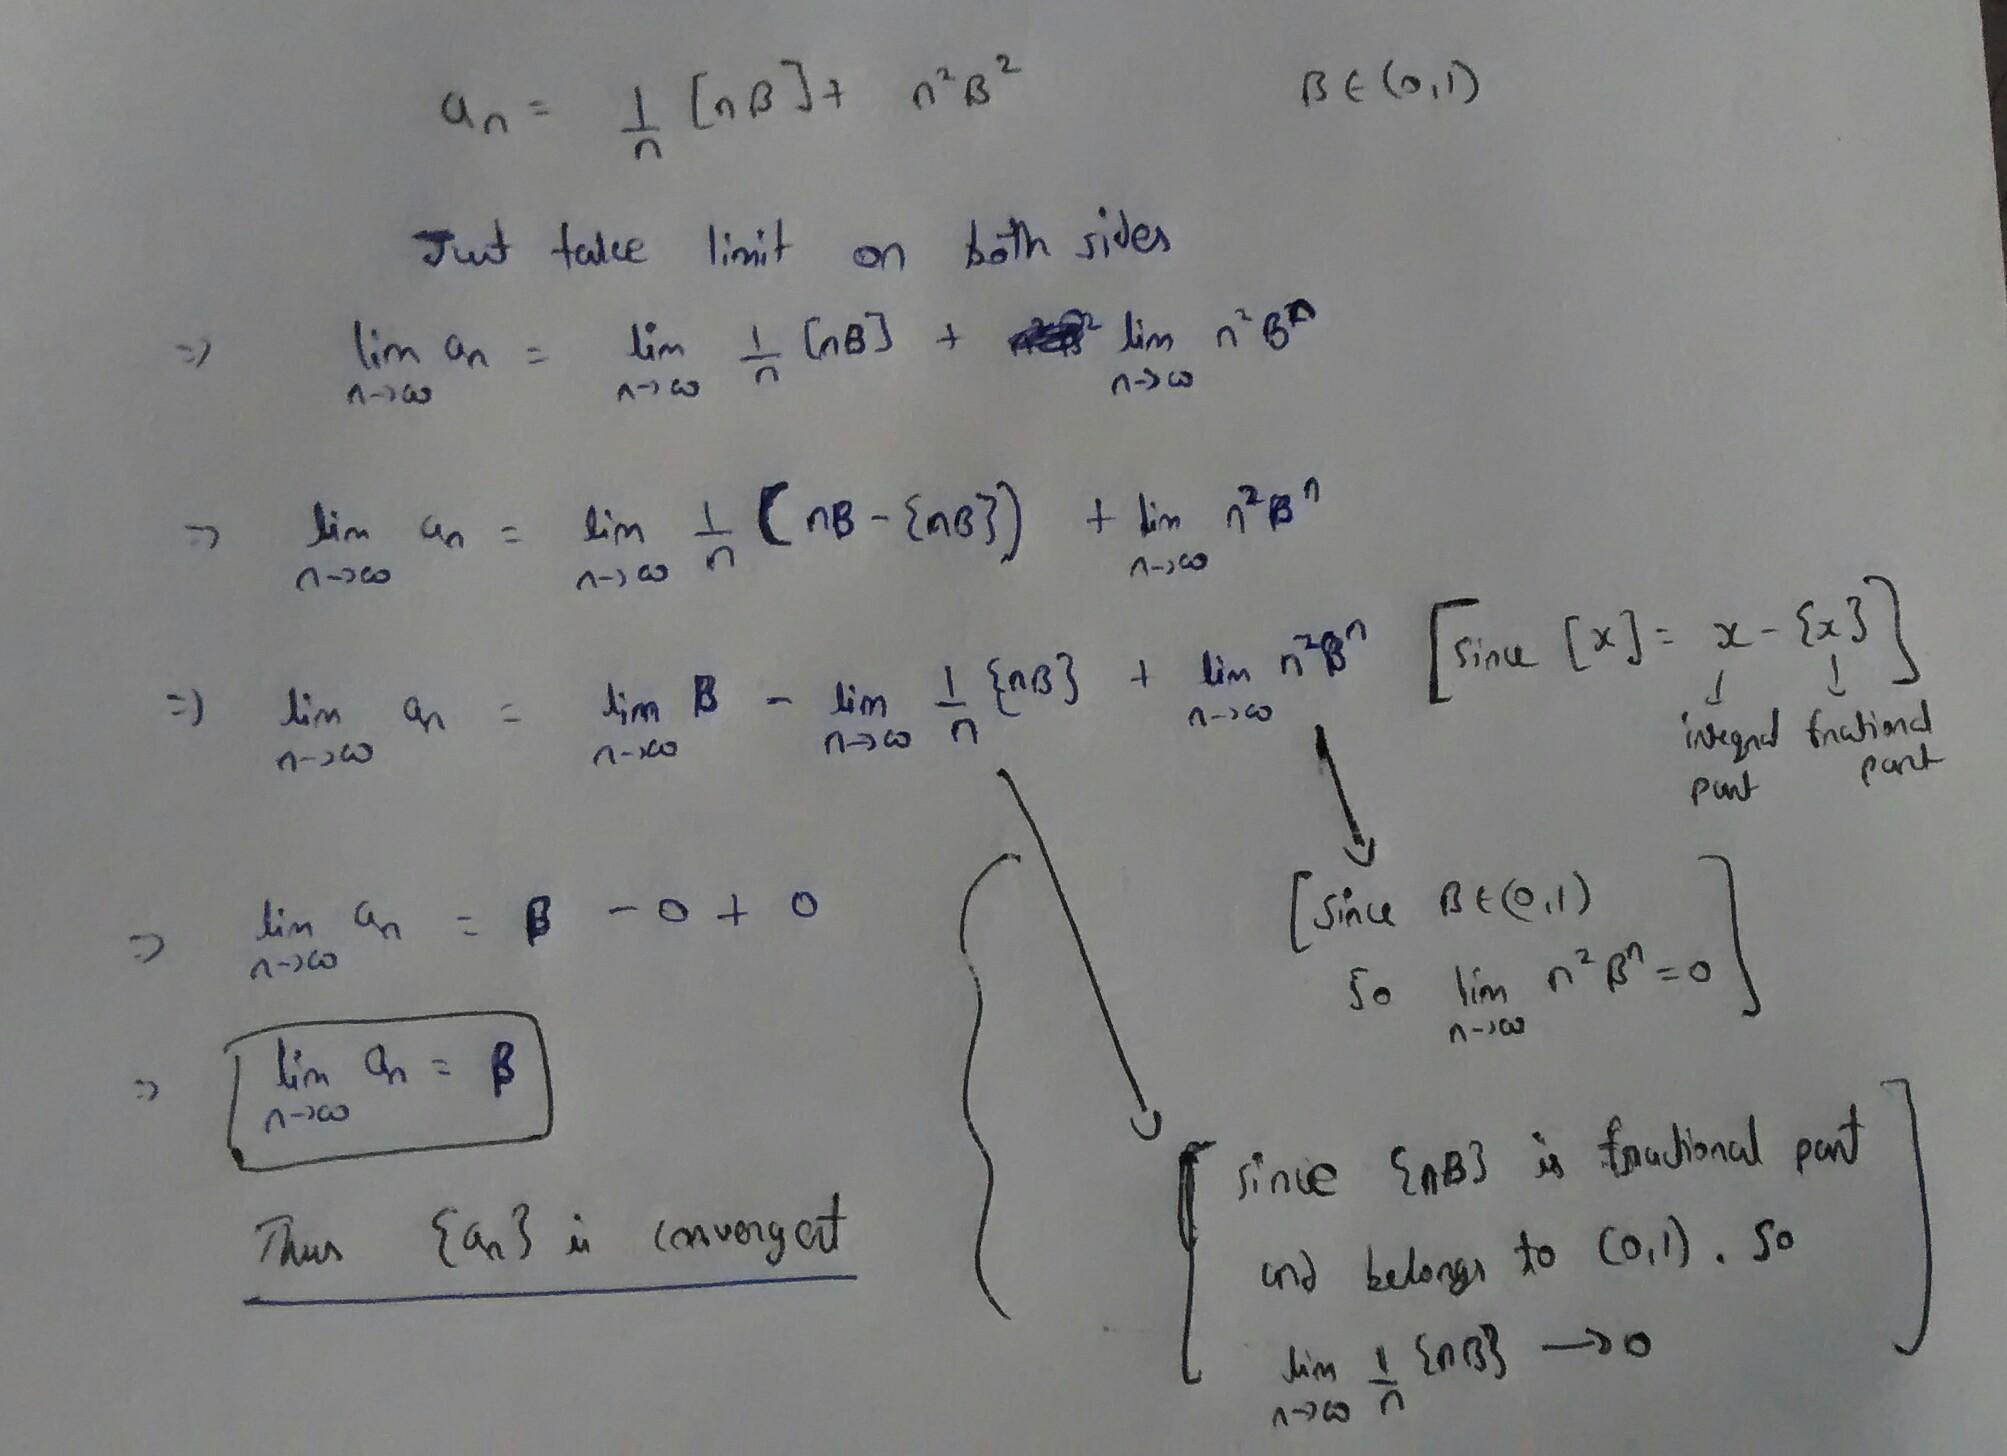 aₙ = 1/n [nβ] + n²β² β ∈ (0,1)
Just take limit on both sides
⇒ lim n→∞ aₙ = lim n→∞ 1/n [nβ] + lim n→∞ n²βⁿ
⇒ lim n→∞ aₙ = lim n→∞ 1/n (nβ - {nβ}) + lim n→∞ n²βⁿ
⇒ lim n→∞ aₙ = lim n→∞ β - lim n→∞ 1/n {nβ} + lim n→∞ n²βⁿ [since [x] = x - {x}]
↓ ↓
integral fractional
part part
⇒ lim n→∞ aₙ = β - 0 + 0
[since β ∈ (0,1)
So lim n→∞ n²βⁿ = 0]
⇒ lim n→∞ aₙ = β
Thus {aₙ} is convergent
[since {nβ} is fractional part
and belongs to (0,1). So
lim n→∞ 1/n {nβ} → 0]